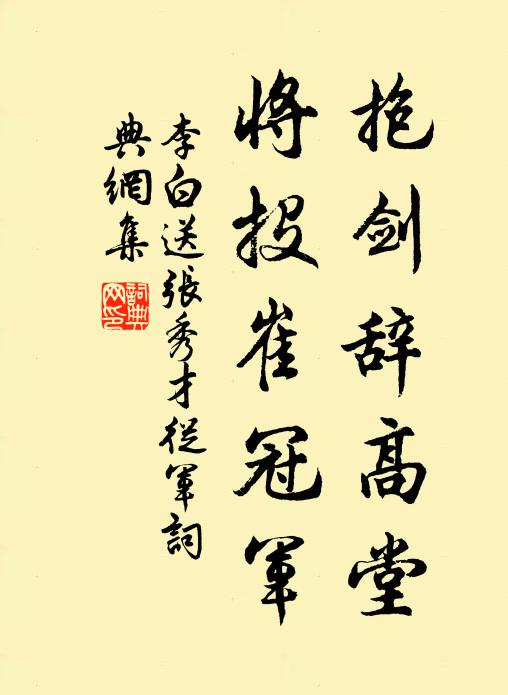 抱剑辞高堂
將投崔冠軍
李白送張秀才從軍詞
典網集
詞典网印